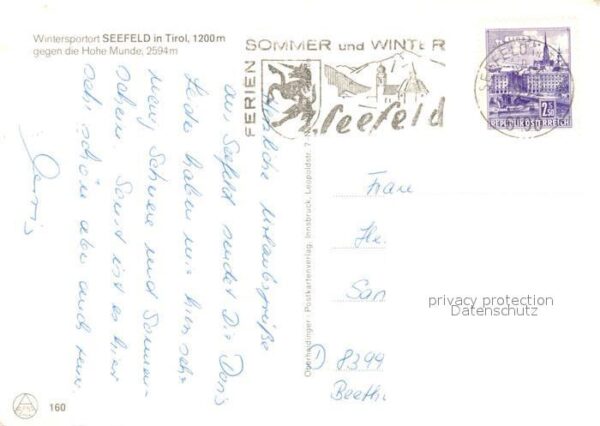 Wintersportort SEEFELD in Tirol, 1200m
gegen die Hohe Munde, 2594m
FERIEN
SOMMER und WINTER
Seefeld
SEEFELD
2.50
REPUBLIK ÖSTERREICH
Herzliche Urlaubsgrüße
aus Seefeld sendet Dir Doris
Leider haben wir hier sehr
wenig Schnee und Sonnen-
schein. Sonst ist es hier
sehr schön aber auch teuer.
Doris
Oberhaidinger - Postkartenverlag, Innsbruck, Leopoldstr. 7
Frau
He
San
D 8399
Beeth
privacy protection
Datenschutz
160